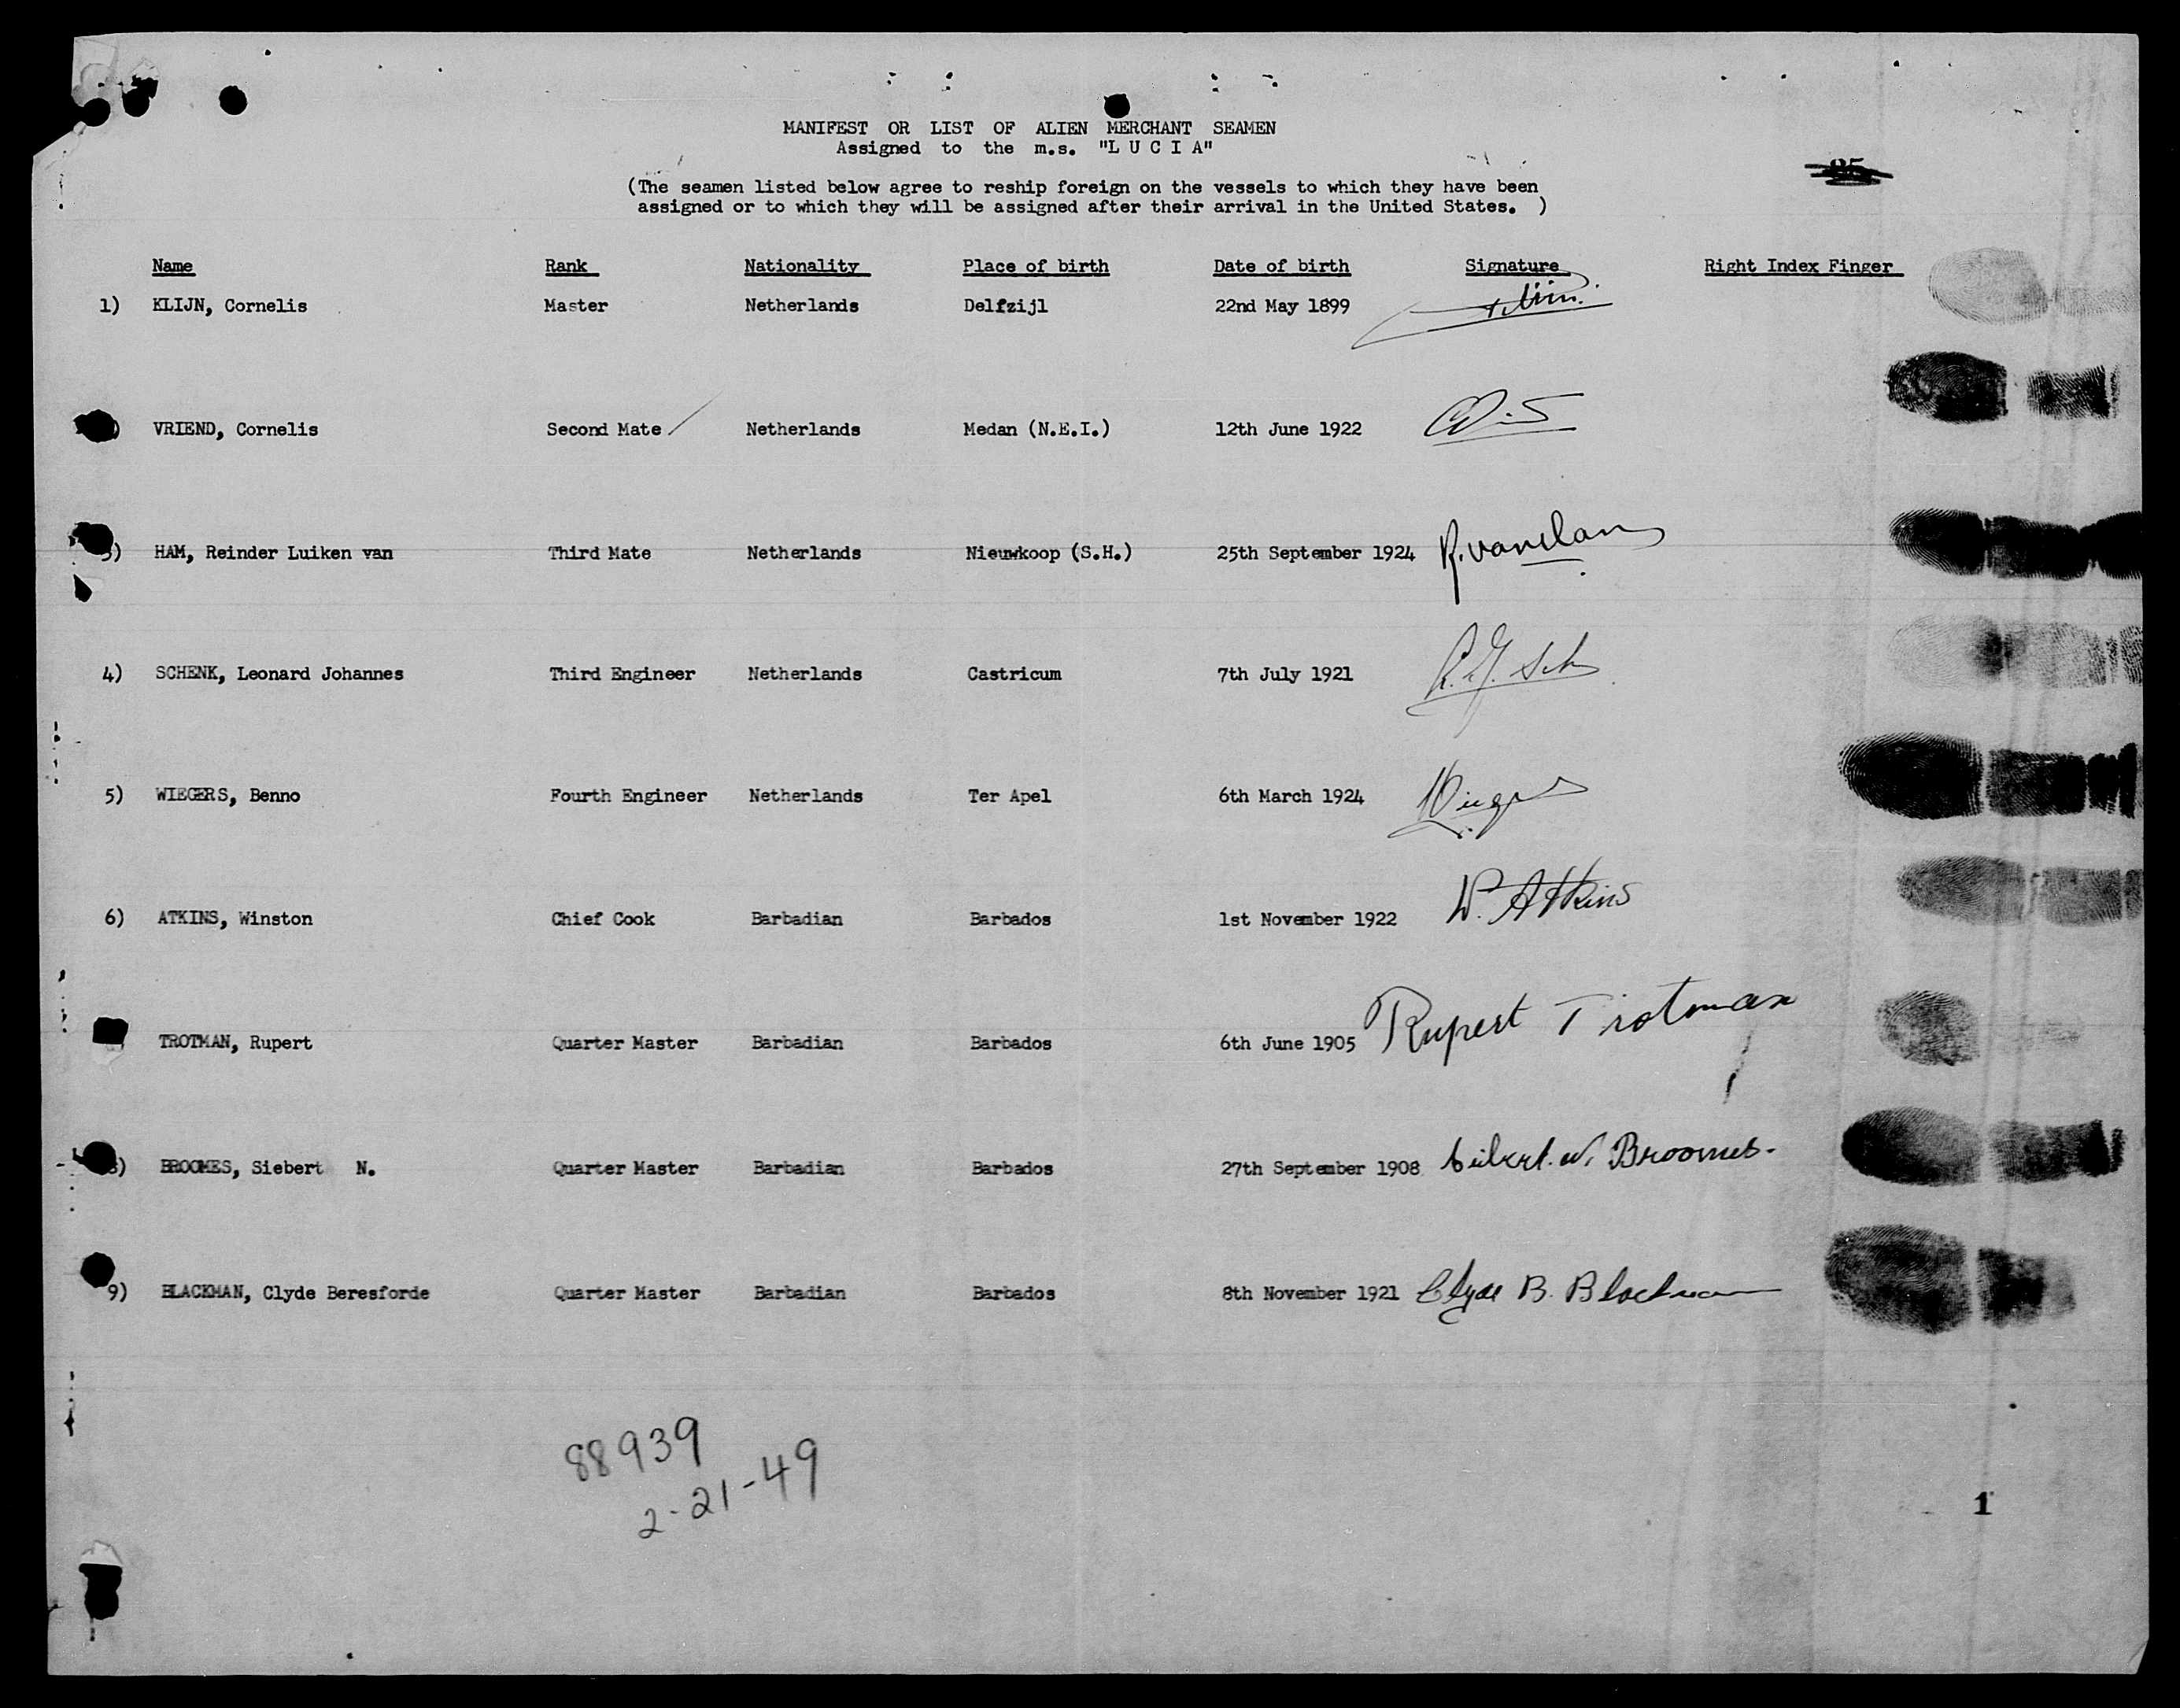 MANIFEST OR LIST OF ALIEN MERCHANT SEAMEN
Assigned to the m.s. "L U C I A"
(The seamen listed below agree to reship foreign on the vessels to which they have been
assigned or to which they will be assigned after their arrival in the United States. )
Name Rank Nationality Place of birth Date of birth Signature Right Index Finger
1) KLIJN, Cornelis Master Netherlands Delfzijl 22nd May 1899
VRIEND, Cornelis Second Mate Netherlands Medan (N.E.I.) 12th June 1922
3) HAM, Reinder Luiken van Third Mate Netherlands Nieuwkoop (S.H.) 25th September 1924 R. van Ham
4) SCHENK, Leonard Johannes Third Engineer Netherlands Castricum 7th July 1921 L. J. Sch
5) WIEGERS, Benno Fourth Engineer Netherlands Ter Apel 6th March 1924 Wiegers
6) ATKINS, Winston Chief Cook Barbadian Barbados 1st November 1922 W. Atkins
TROTMAN, Rupert Quarter Master Barbadian Barbados 6th June 1905 Rupert Trotman
8) BROOMES, Siebert N. Quarter Master Barbadian Barbados 27th September 1908 Broomes.
9) BLACKMAN, Clyde Beresforde Quarter Master Barbadian Barbados 8th November 1921 Clyde B. Blackman
88939
2-21-49
1